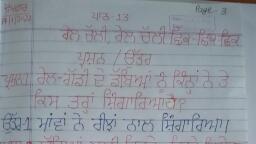 Page - 3
ਪਾਠ - 13
ਰੇਲ ਚੱਲੀ, ਰੇਲ ਚੱਲੀ ਛਿਕ-ਛਿਕ ਛਿਕ
ਪ੍ਰਸ਼ਨ / ਉੱਤਰ
ਪ੍ਰਸ਼ਨ1. ਰੇਲ-ਗੱਡੀ ਦੇ ਡੱਬਿਆਂ ਨੂੰ ਕਿਨ੍ਹਾਂ ਨੇ ਤੇ
ਕਿਸ ਤਰ੍ਹਾਂ ਸ਼ਿੰਗਾਰਿਆ ਹੈ?
ਉੱਤਰ-1 ਮਾਂਵਾਂ ਨੇ ਰੀਝਾਂ ਨਾਲ ਸ਼ਿੰਗਾਰਿਆ।